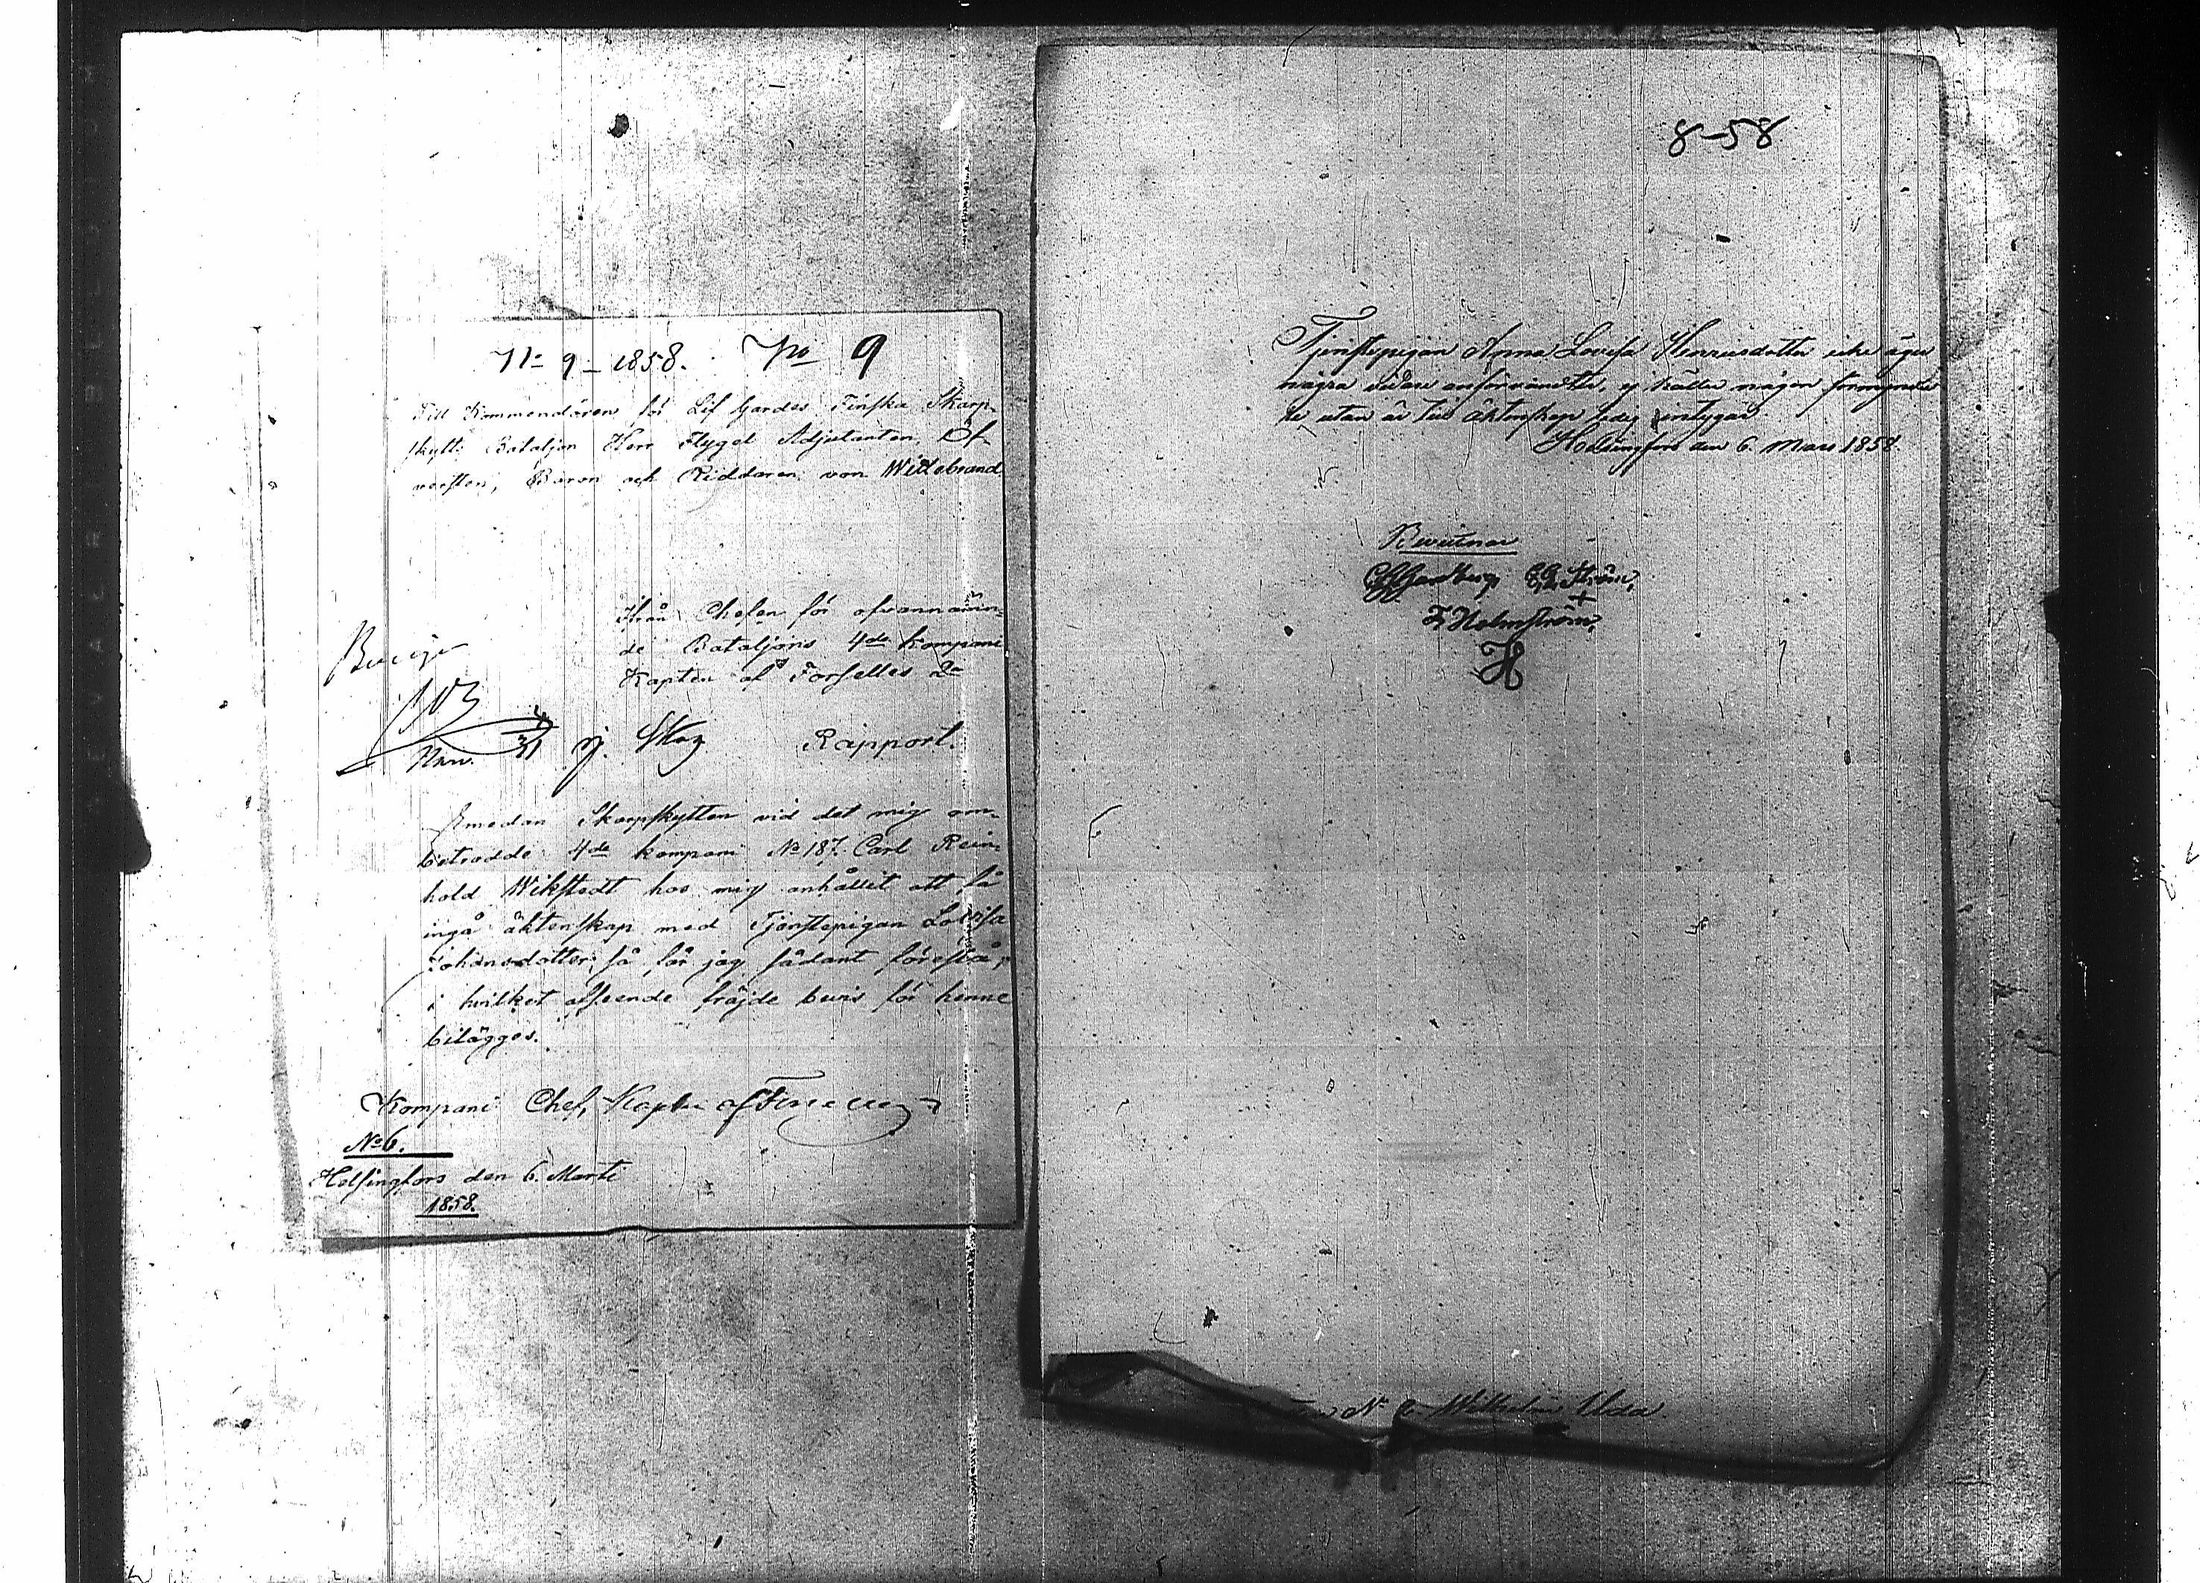 N: 9 – 1858. No 9
Till Kommendören för Lif Gardes Finska Skarp-
skytte Bataljon Herr Flygel Adjutanten, Öf-
versten, Baron och Riddaren von Willebrand
Ifrån Chefen för ofvannämn-
de Bataljons 4de kompani
Kapten af Forselles 2a
Rapport.
Emedan Skarpskytten vid det mig an-
betrodde 4de kompani No 187. Carl Rein-
hold Wikstedt hos mig anhållit att få
ingå äktenskap med Tjenstepigan Lovisa
Johansdotter; så får jag sådant föreslå,
i hvilket afseende fräjde bevis för henne
bilägges.
Kompani Chef, Kapten af Forselles 2
No 6.
Helsingfors den 6. Marti
1858.
8–58
Tjenstepigan Anna Lovisa Henricsdotter icke äger
några vidare anförvandter, ej häller någon förmyndа-
re utan är till äktenskap ledig intygar.
Helsingfors den 6. Mars 1858.
Bevittnar
Ström,
+
F. Holmström,
H
No Wilhelm